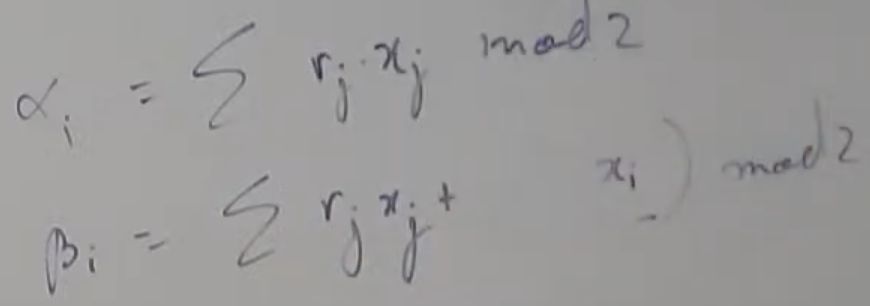 αᵢ = Σ rⱼ·xⱼ mod 2
βᵢ = Σ rⱼxⱼ + xᵢ) mod 2